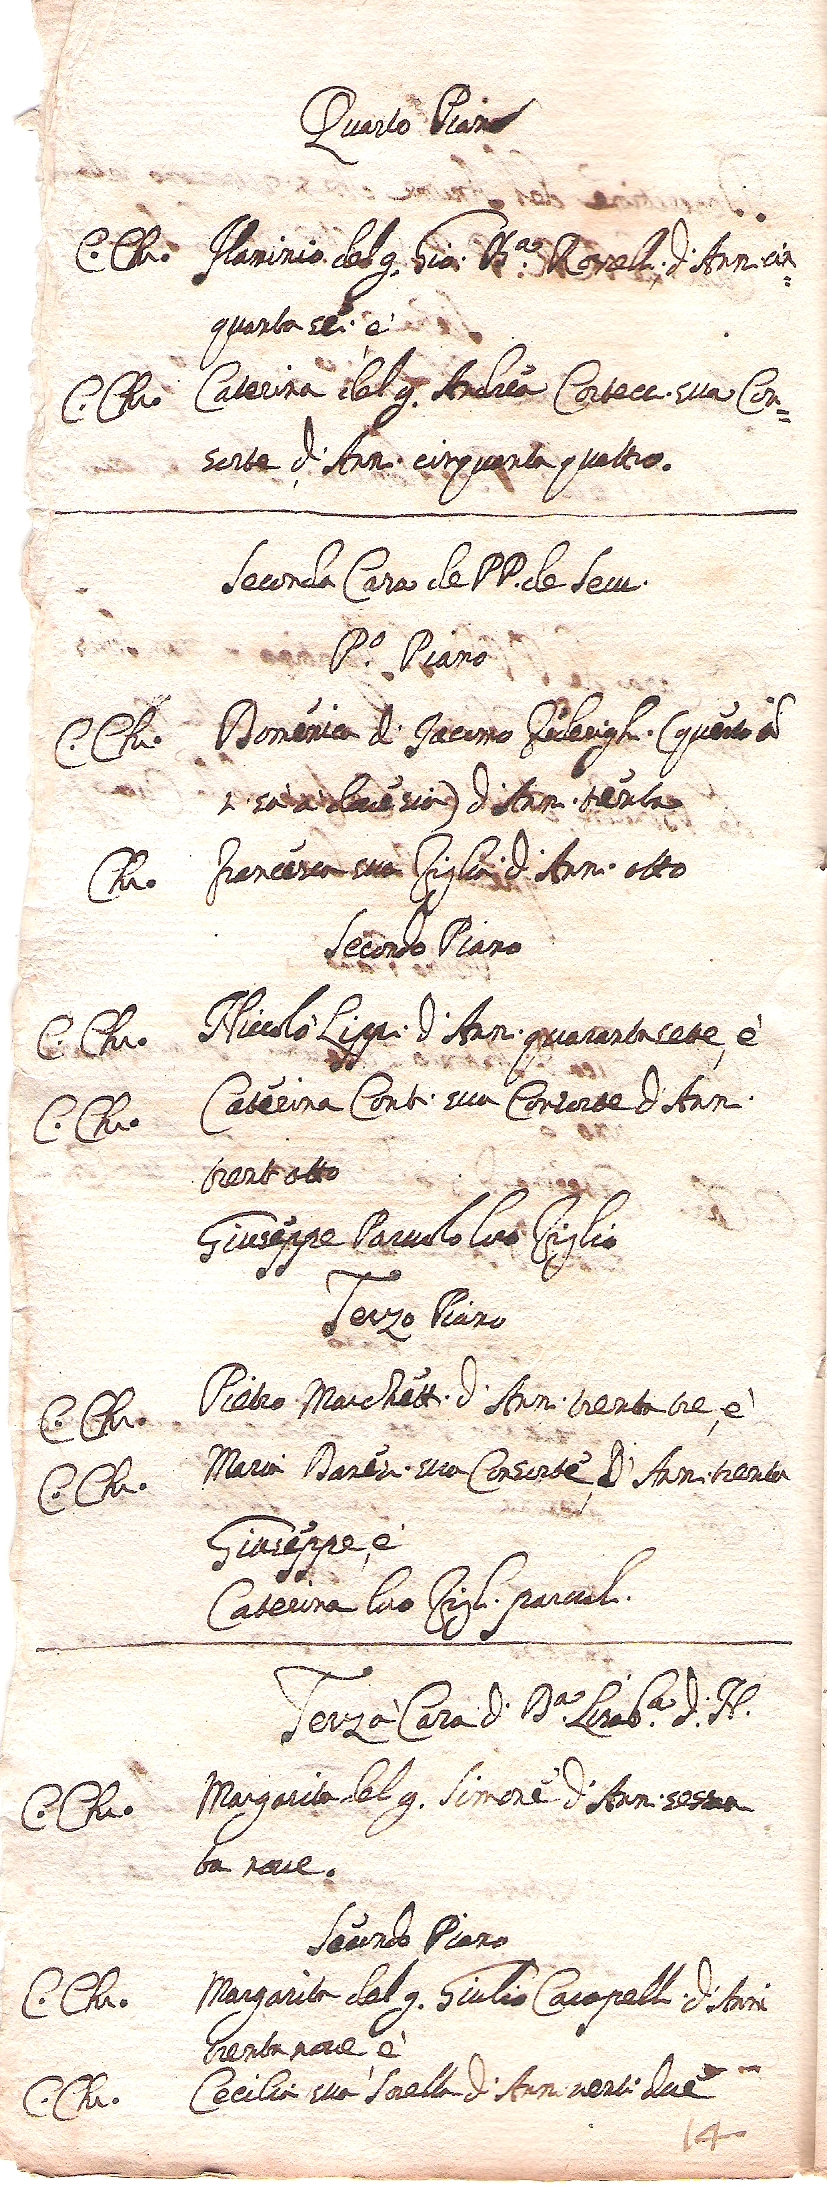 Quarto Piano
C. Chr. Flaminio del q. Gio: Bta. Rovell. d'Ann. cin=
quanta sei. è
C. Chr. Caterina del q. Andrea Cortecc. sua Con=
sorte d'Ann. cinquanta quattro.
Seconda Casa de PP. de Servi.
Po. Piano
C. Chr. Domenica di Jacomo Federigh. (questo
d'Ann. trenta
Chr. Francesca sua Figlia d'Ann. otto
Secondo Piano
C. Chr. Niccolò Lipp. d'Ann. quaranta sette, è
C. Chr. Caterina Cont. sua Consorte d'Ann.
trent otto
Giuseppe Parvolo loro Figlio
Terzo Piano
C. Chr. Pietro Marchett. d'Ann. trenta tre, è
C. Chr. Maria sua Consorte, d'Ann. trenta
Giuseppe, è
Caterina loro Figl. parvol.
Terza Casa d.
C. Chr. Margarita del q. Simone d'Ann. sessan
ta nove.
Secondo Piano
C. Chr. Margarita del q. Giulio Cacapell. d'Anni
trenta nove, è
C. Chr. Cecilia sua Sorella d'Ann. venti due
14